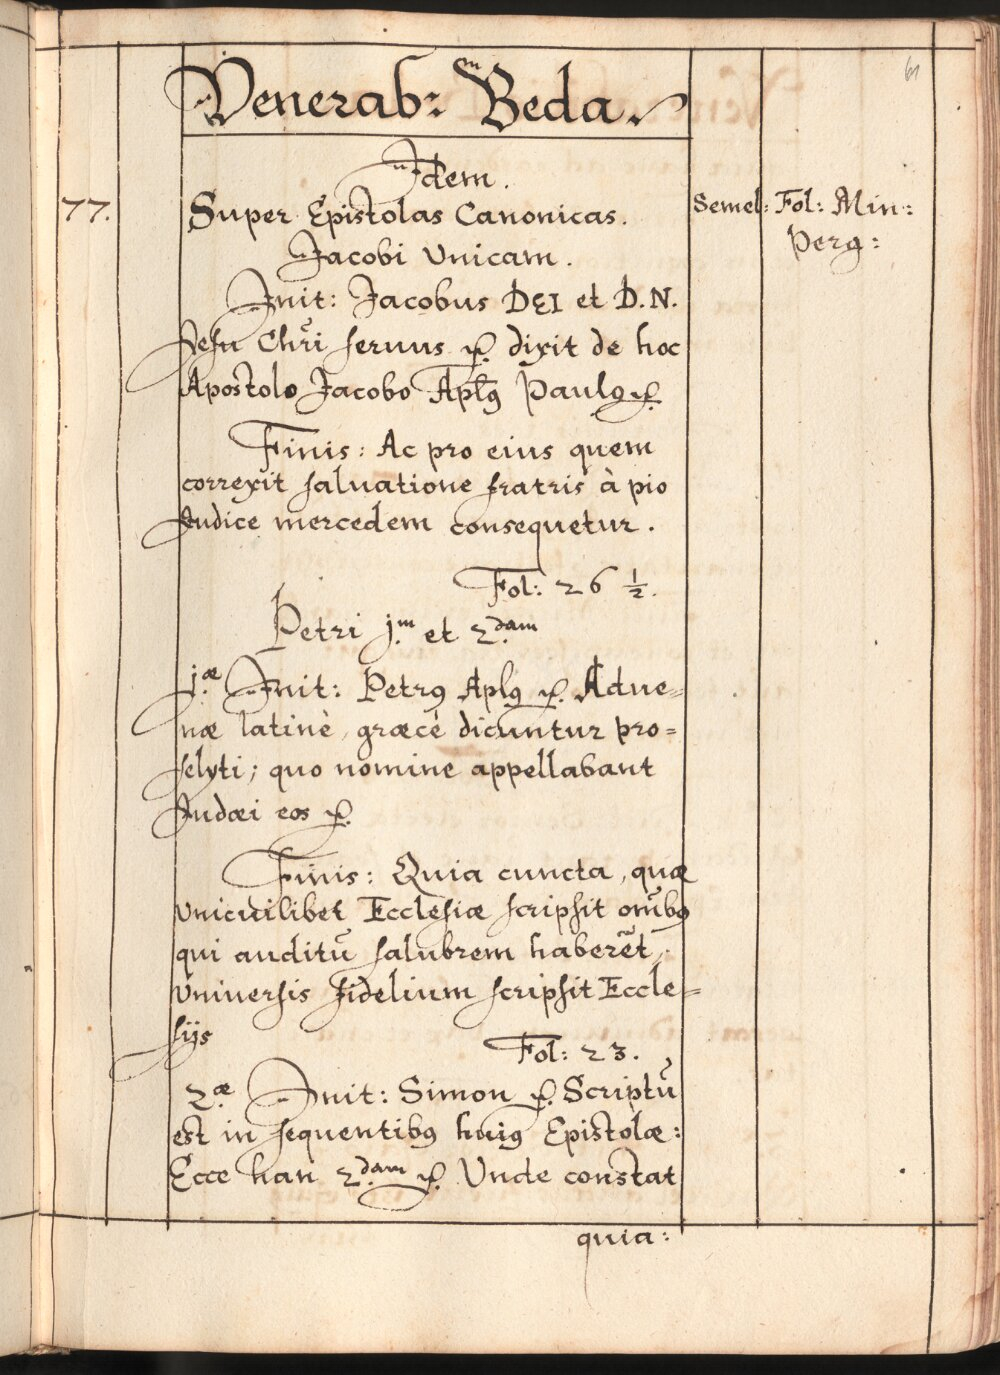 61
Venerab: Beda.
Idem.
77. Super Epistolas Canonicas. Semel: Fol: Min:
Jacobi Unicam. Perg:
Init: Jacobus DEI et D. N.
Jesu Chri seruus &. dixit de hoc
Apostolo Jacobo Aplꝰ Paulꝰ &.
Finis: Ac pro eius quem
correxit saluatione fratris à pio
Iudice mercedem consequetur.
Fol: 26 ½.
Petri j.m et 2.dam
j.æ Init: Petrꝰ Aplꝰ &. Adue=
næ latinè, græcè dicuntur pro=
selyti; quo nomine appellabant
Iudæi eos &.
Finis: Quia cuncta, quæ
unicuilibet Ecclesiæ scripsit omībꝰ
qui auditū salubrem haberēt,
Uniuersis fidelium scripsit Eccle=
sijs
Fol: 23.
2.æ Init: Simon &. Scriptū
est in sequentibꝰ huiꝰ Epistolæ:
Ecce han 2.dam &. Unde constat
quia: